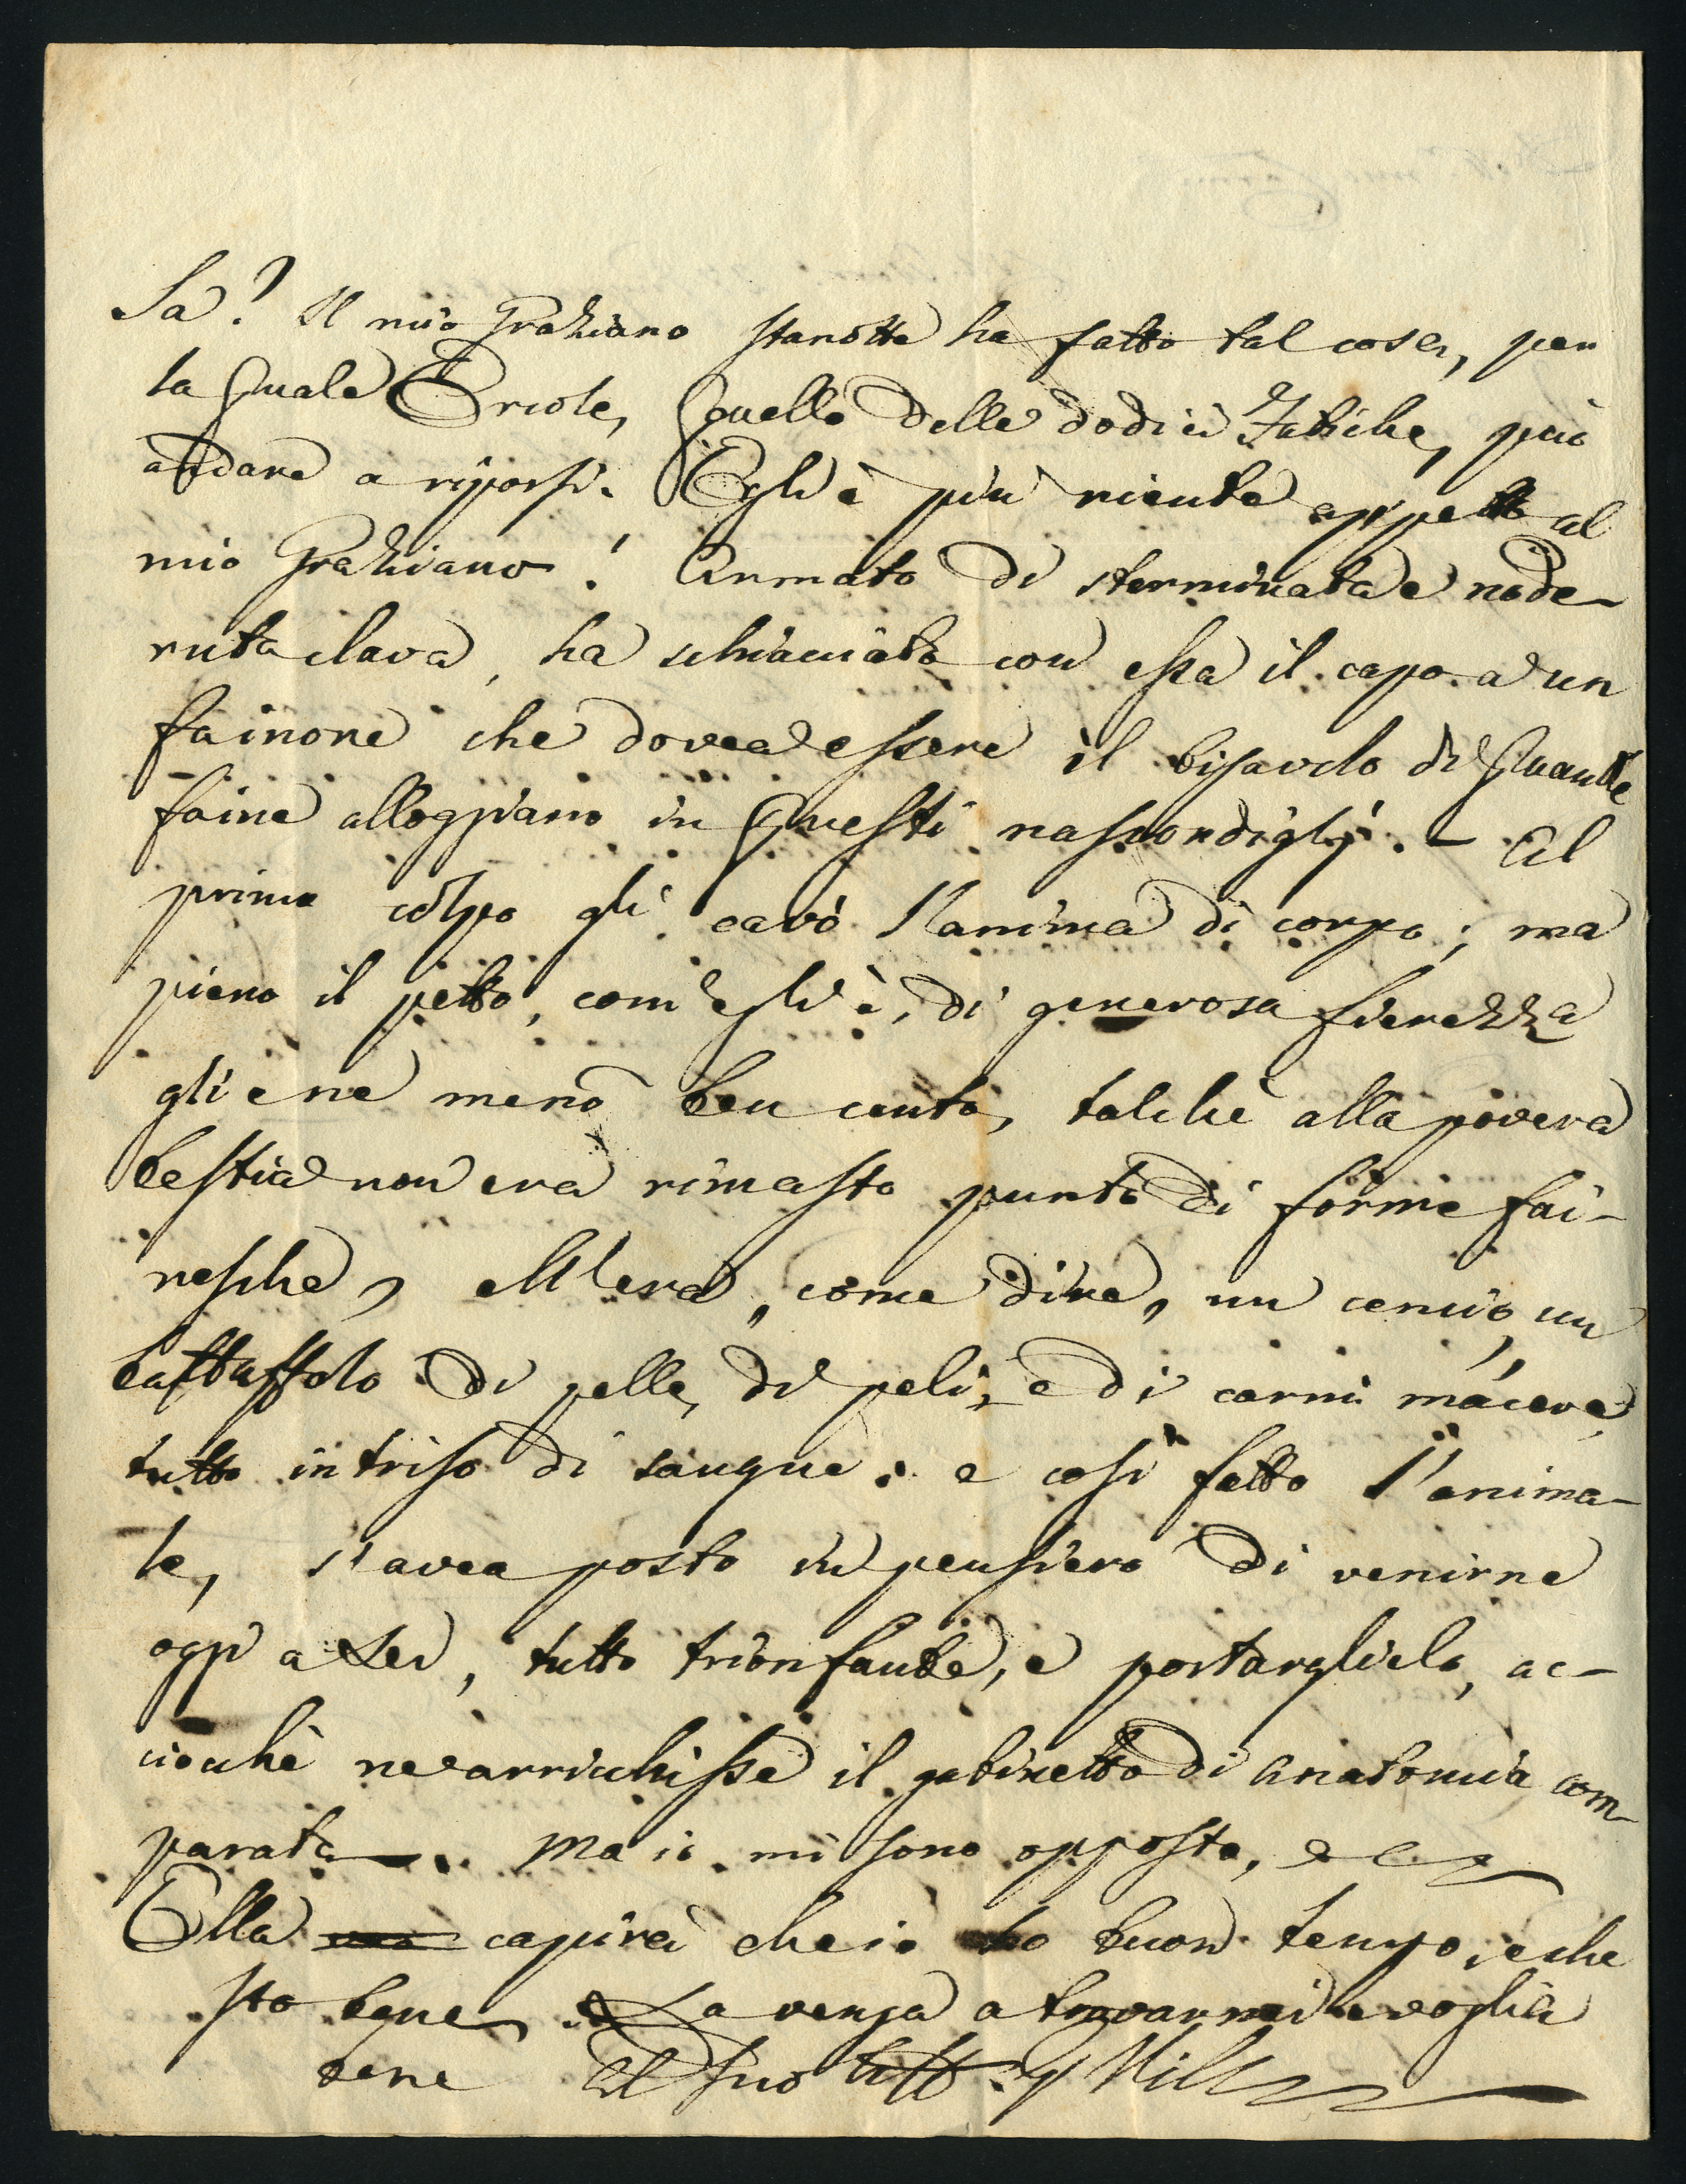 Sa? Il mio Graziano stanotte ha fatto tal cosa, per
la quale Ercole, quello delle dodici Fatiche, può
andare a riporsi. Egli è più niente appetto al
mio Grazziano! Armato di sterminata e node-
ruta clava, ha schiacciato con essa il capo a un
fainone che dovea essere il bisavolo di quante
faine alloggiano in questi nascondiglj. - Al
primo colpo gli cavò l'anima di corpo; ma
pieno il petto, com'egli è, di generosa fierezza
gliene menò ben cento, talchè alla povera
bestia non era rimasto punto di forme fai-
nesche, ell'era, come dire, un cencio, un
battuffolo di pelle, di peli, e di carni màcere,
tutto intriso di sangue; e così fatto l'anima-
le, s'avea posto in pensiero di venirne
oggi a Lei, tutto trionfante, e portarglielo, ac-
ciocchè ne arricchisse il gabinetto di Anatomia com-
parata. Ma io mi sono opposto, e
Ella capirà che io ho buon tempo, e che
sto bene. La venga a trovarmi e voglia
bene Il suo